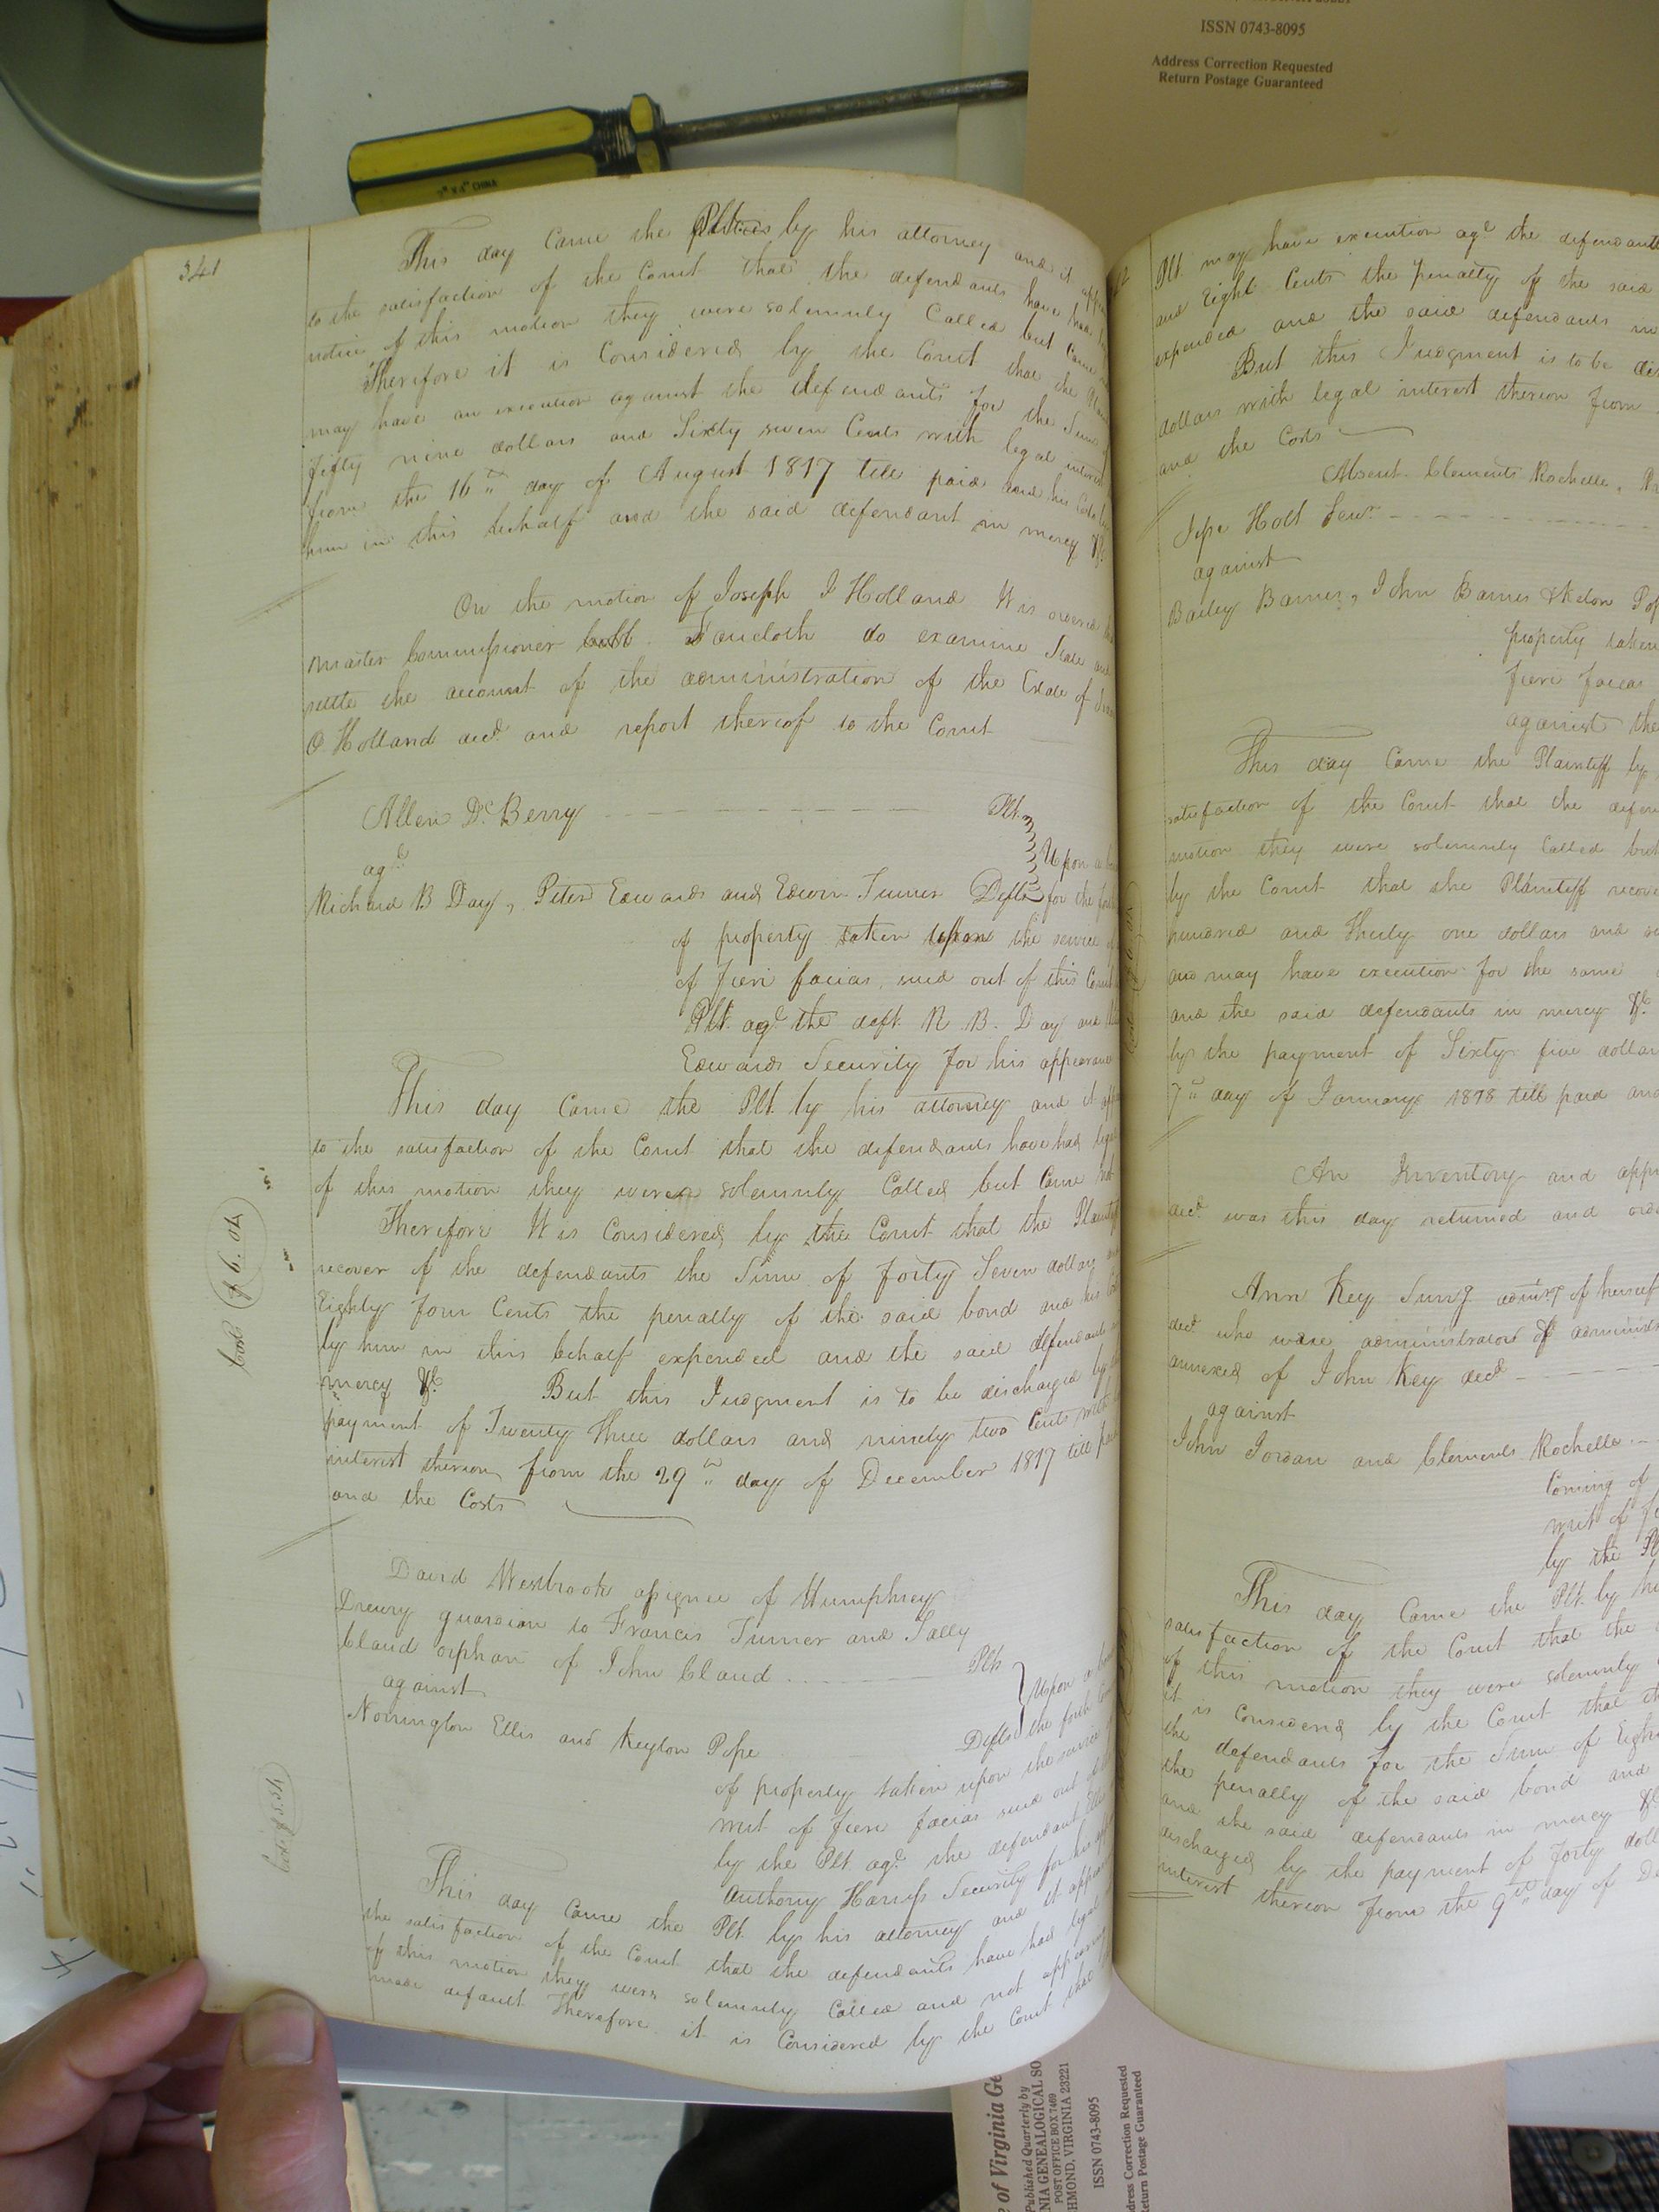 ISSN 0743-8095
Address Correction Requested
Return Postage Guaranteed
CHINA
341
This day Came the Plt by his attorney and it
to the satisfaction of the Court that the defendants have had
notice of this motion they were solemnly Called but Came
Therefore it is Considered by the Court that the
may have an execution against the defendants for the Sum
fifty nine dollars and Sixty seven Cents with legal interest
from the 16th day of August 1817 till paid and his Costs by
him in this behalf and the said defendant in mercy &c.
On the motion of Joseph J Holland It is ordered
Master Commissioner do examine State and
settle the account of the administration of the Estate of
O Holland decd. and report thereof to the Court
Allen Dc. Berry Plt.
agt.
Upon a
Richard B Day, Peter Edwards and Edwin Turner Defts for the
of property taken upon the service
of fieri facias, sued out of this Court
Plt. agt. the deft. R. B. Day and
Edwards Security for his appearance
This day Came the Plt. by his attorney and it
to the satisfaction of the Court that the defendants have had legal
of this motion they were solemnly Called but Came not
Therefore It is Considered by the Court that the Plaintiff
recover of the defendants the Sum of forty Seven dollars
Eighty four Cents the penalty of the said bond and his
by him in this behalf expended and the said defendants
mercy &c. But this Judgment is to be discharged by
payment of Twenty three dollars and ninety two Cents with
interest thereon from the 29th day of December 1817 till paid
and the Costs
Costs $6.04
David Westbrook assignee of Humphrey
Drewry guardian to Frances Turner and Sally
Claud orphan of John Claud Plt
against
Upon a
Norrington Ellis and Keylon Pope Defts the forth
of property taken upon the service
writ of fieri facias sued out of
by the Plt. agt. the defendant Ellis
Anthony Harriss Security for his
This day Came the Plt. by his attorney and it
the satisfaction of the Court that the defendants have had legal
of this motion they were solemnly Called and not appearing
made default Therefore it is Considered by the Court that
Costs $5.54
Plt. may have execution agt. the defendants
and Eight Cents the penalty of the said
expended and the said defendants in
But this Judgment is to be
dollars with legal interest thereon from
and the Costs
Absent Clements Rochelle,
Jesse Holt Senr.
against
Bailey Barnes, John Barnes
property taken
fieri facias
against the
This day Came the Plaintiff by
satisfaction of the Court that the
motion they were solemnly Called but
by the Court that the Plaintiff
hundred and thirty one dollars and
and may have execution for the same
and the said defendants in mercy &c.
by the payment of Sixty five
7th day of January 1818 till paid and
An Inventory and
decd. was this day returned and
Ann Key Surv'g adm'x of herself
decd. who were administrators of
annexed of John Key decd.
against
John Jordan and Clements Rochelle
Coming of
writ of
by the
This day Came the Plt. by
satisfaction of the Court that the
of this motion they were solemnly
it is Considered by the Court that
the defendants for the Sum of
the penalty of the said bond and
and the said defendants in mercy &c.
discharged by the payment of forty
interest thereon from the 9th day of
of Virginia
Published Quarterly by
NIA GENEALOGICAL SO
POST OFFICE BOX 7469
HMOND, VIRGINIA 23221
ISSN 0743-8095
dress Correction Requested
Return Postage Guaranteed